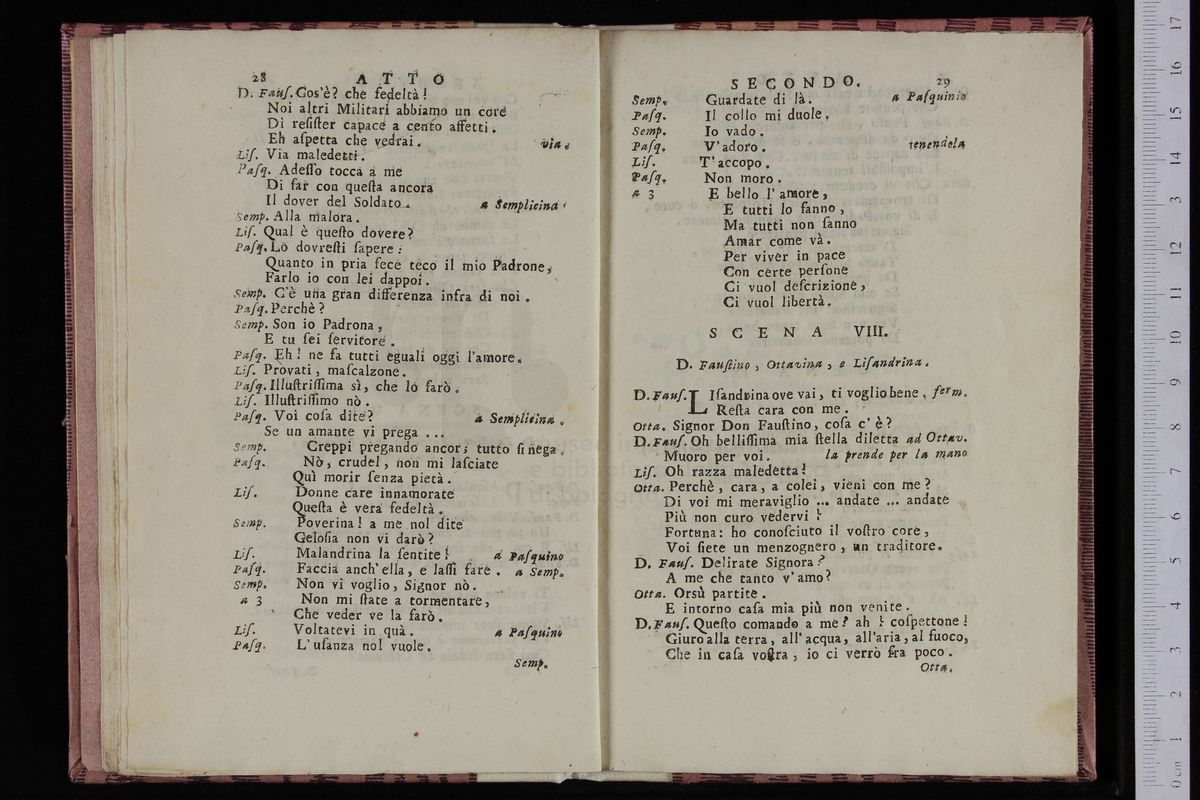 28 A T T O
D. Fauſ. Cos'è? che fedeltà!
Noi altri Militari abbiamo un core
Di reſiſter capace a cento affetti.
Eh aſpetta che vedrai. via.
Liſ. Via maledetti.
Paſq. Adeſſo tocca a me
Di far con queſta ancora
Il dover del Soldato. a Semplicina.
Semp. Alla malora.
Liſ. Qual è queſto dovere?
Paſq. Lo dovreſti ſapere:
Quanto in pria fece teco il mio Padrone,
Farlo io con lei dappoi.
Semp. C'è una gran differenza infra di noi.
Paſq. Perchè?
Semp. Son io Padrona,
E tu ſei ſervitore.
Paſq. Eh! ne fa tutti eguali oggi l'amore.
Liſ. Provati, maſcalzone.
Paſq. Illuſtriſſima sì, che lo farò.
Liſ. Illuſtriſſimo nò.
Paſq. Voi coſa dite? a Semplicina.
Se un amante vi prega ...
Semp. Creppi pregando ancor; tutto ſi nega.
Paſq. Nò, crudel, non mi laſciate
Quì morir ſenza pietà.
Liſ. Donne care innamorate
Queſta è vera fedeltà.
Semp. Poverina! a me nol dite
Geloſia non vi darò?
Liſ. Malandrina la ſentite! a Paſquino
Paſq. Faccia anch'ella, e laſſi fare. a Semp.
Semp. Non vi voglio, Signor nò.
a 3 Non mi ſtate a tormentare,
Che veder ve la farò.
Liſ. Voltatevi in quà. a Paſquino
Paſq. L'uſanza nol vuole.
Semp.
SECONDO. 29
Semp. Guardate di là. a Paſquinio
Paſq. Il collo mi duole.
Semp. Io vado.
Paſq. V'adoro. tenendola
Liſ. T'accopo.
Paſq. Non moro.
a 3 E bello l'amore,
E tutti lo fanno,
Ma tutti non ſanno
Amar come và.
Per viver in pace
Con certe perſone
Ci vuol deſcrizione,
Ci vuol libertà.
S C E N A VIII.
D. Fauſtino, Ottavina, e Liſandrina.
D. Fauſ. LIſandrina ove vai, ti voglio bene, ferm.
Reſta cara con me.
Otta. Signor Don Fauſtino, coſa c'è?
D. Fauſ. Oh belliſſima mia ſtella diletta ad Ottav.
Muoro per voi. la prende per la mano
Liſ. Oh razza maledetta!
Otta. Perchè, cara, a colei, vieni con me?
Di voi mi meraviglio ... andate ... andate
Più non curo vedervi!
Fortuna: ho conoſciuto il voſtro core,
Voi ſiete un menzognero, un traditore.
D. Fauſ. Delirate Signora?
A me che tanto v'amo?
Otta. Orsù partite.
E intorno caſa mia più non venite.
D. Fauſ. Queſto comando a me? ah! coſpettone!
Giuro alla terra, all'acqua, all'aria, al fuoco,
Che in caſa voſtra, io ci verrò fra poco.
Otta.
0 cm 1 2 3 4 5 6 7 8 9 10 11 12 13 14 15 16 17